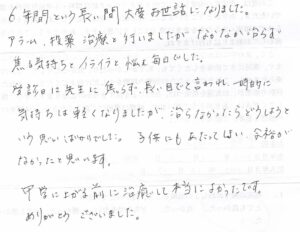 6年間という長い間大変お世話になりました。
アラーム、投薬治療と行いましたがなかなか治らず
焦る気持ちとイライラと悩む毎日でした。
受診日に先生に焦らず、長い目でと言われ一時的に
気持ちは軽くなりましたが、治らなかったらどうしようと
いう思いばかりでした。子供にもあたってしまい、余裕が
なかったと思います。
中学に上がる前に治療して本当によかったです。
ありがとうございました。